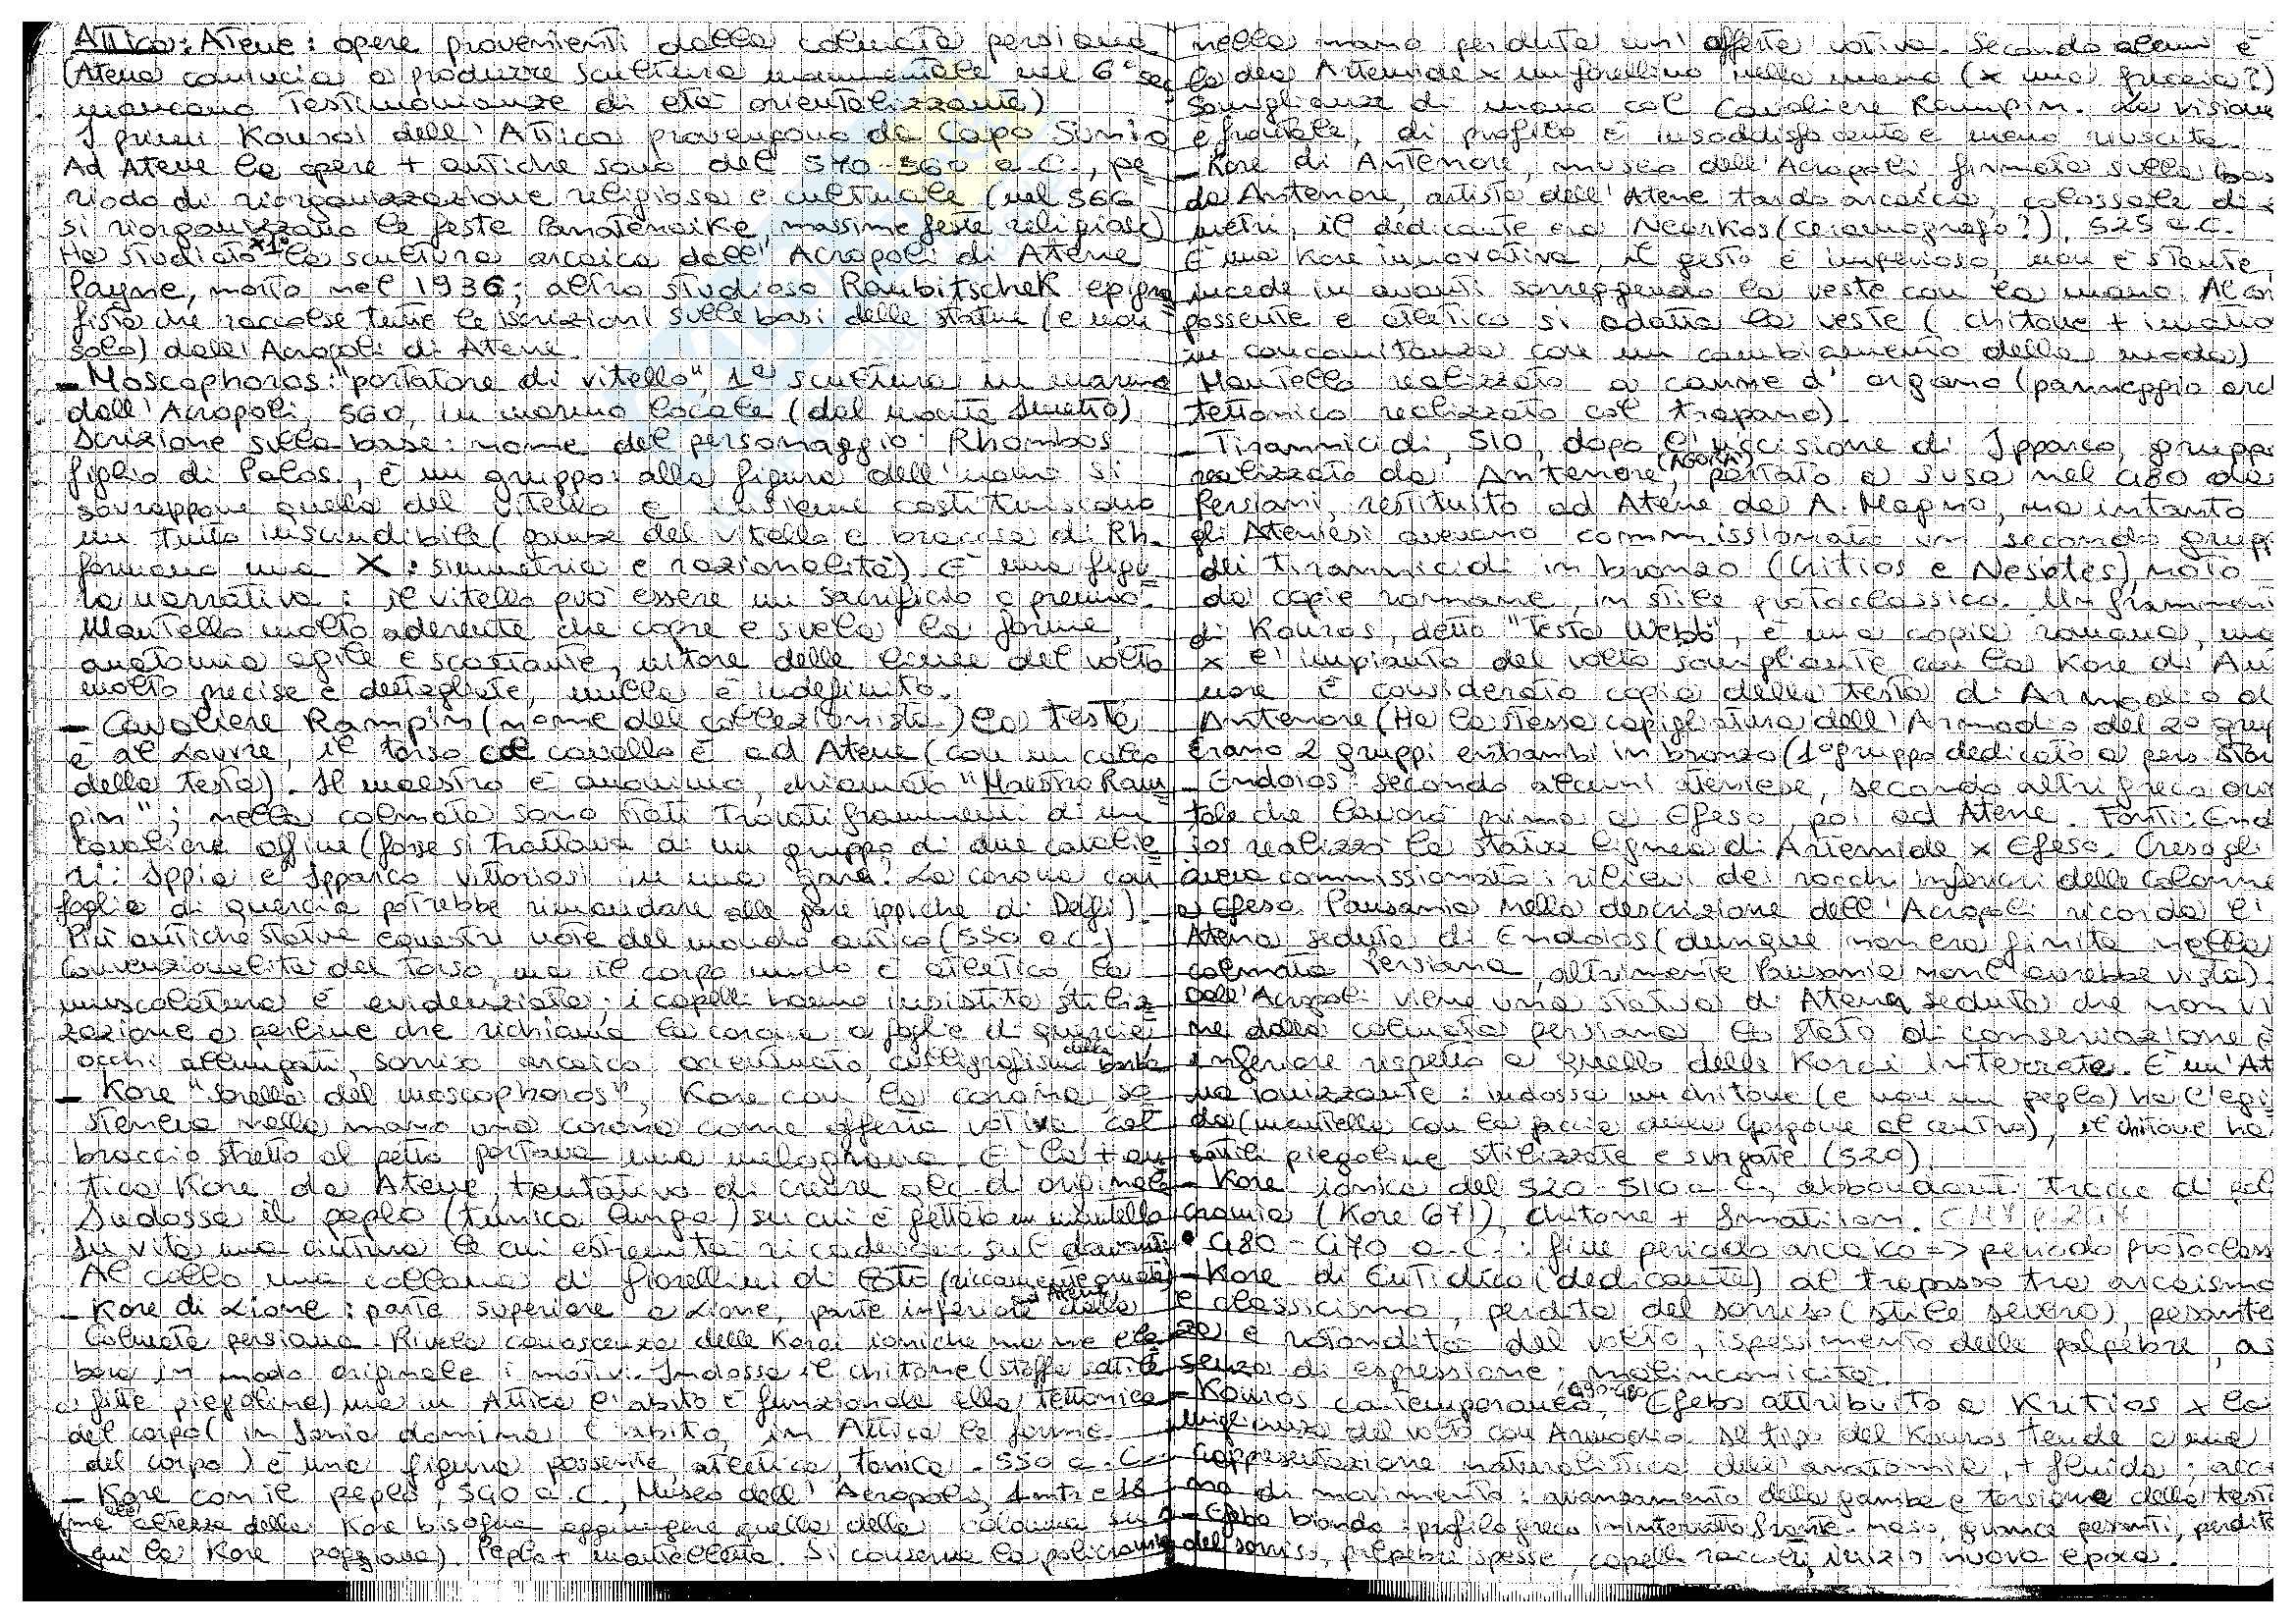 Attica: Atene: opere provenienti dalla colmata persiana
(Atena comincia a produrre scultura monumentale nel 6° sec
mancano testimonianze di età orientalizzante)
I primi Kouroi dell'Attica provengono da Capo Sunio
Ad Atene le opere + antiche sono del 570-560 a.C., pe=
riodo di riorganizzazione religiosa e culturale (nel 566
si riorganizzano le feste Panatenaike, massime feste religiose)
Ha studiato x 1° la scultura arcaica dell'Acropoli di Atene
Payne, morto nel 1936; altro studioso Raubitschek epigra=
fista che raccolse tutte le iscrizioni sulle basi delle statue (e non
solo) dall'Acropoli di Atene.
- Moscophoros: "portatore di vitello", 1a scultura in marmo
dall'Acropoli, 560, in marmo locale (dal monte Imetto)
Iscrizione sulla base: nome del personaggio: Rhombos
figlio di Palos, è un gruppo: alla figura dell'uomo si
sovrappone quella del vitello e insieme costituiscono
un tutto inscindibile (gambe del vitello e braccia di Rh.
formano una X: simmetria e razionalità). È una figu=
ra narrativa: il vitello può essere un sacrificio o premio.
Mantello molto aderente che copre e svela le forme,
anatomia agile e scattante, nitore delle linee del volto
molto precise e dettagliate, nulla è indefinito.
- Cavaliere Rampin (nome del collezionista) la testa
è al Louvre, il torso col cavallo è ad Atene (con un calco
della testa). Il maestro è anonimo, chiamato "Maestro Ram=
pin"; nella colmata sono stati trovati frammenti di un
cavaliere affine (forse si trattava di un gruppo di due cavalie=
ri: Ippia e Ipparco vittoriosi in una gara? La corona con
foglie di quercia potrebbe rimandare alle gare ippiche di Delfi)
Più antiche statue equestri note del mondo antico (550 a.C.)
Convenzionalità del torso, ma il corpo nudo è atletico, la
muscolatura è evidenziata; i capelli hanno insistita stiliz=
zazione a perline che richiama la corona a foglie di quercia
occhi allungati, sorriso arcaico accentuato, calligrafismo della barba
- Kore "sorella del moscophoros", Kore con la corona, so
steneva nella mano una corona come offerta votiva col
braccio stretto al petto portava una melograna. È la + an
tica Kore da Atene, tentativo di creare qlc. d'originale
Indossa il peplo (tunica lunga) su cui è gettato un mantello
In vita una cintura le cui estremità ricadevano sul davanti
Al collo una collana di fiorellini di loto (riccamente ornata)
- Kore di Lione: parte superiore a Lione, parte inferiore ad Atene, dalla
Colmata persiana. Rivela conoscenza delle Korai ioniche ma ne ela=
bora in modo originale i motivi. Indossa il chitone (stoffa sottile
a fitte piegoline) ma in Attica l'abito è funzionale alla tettonica
del corpo (in Ionia domina l'abito, in Attica le forme
del corpo) è una figura possente, atletica, tonica. 550 a.C.
- Kore con il peplo, 540 a.C., Museo dell'Acropoli,
(ma alla altezza della Kore bisogna aggiungere quella della colonna su
cui la Kore poggiava). Peplo + mantelletto. Si conserva la policromia
nella mano perduta un'offerta votiva. Secondo alcuni è
la dea Artemide x un forellino nella mano (x una freccia?)
Somiglianze di mano col Cavaliere Rampin. La visione
è frontale, di profilo è insoddisfacente e meno riuscita.
- Kore di Antenore, museo dell'Acropoli firmata sulla bas
da Antenore, artista dell'Atene tardo arcaica, colossale di 2
metri, il dedicante era Nearkos (ceramografo?), 525 a.C.
È una Kore innovativa, il gesto è imperioso, non è stante,
incede in avanti sorreggendo la veste con la mano. Al cor
possente e atletico si adatta la veste (chitone + imatio
in concomitanza con un cambiamento della moda)
Mantello realizzato a canne d'organo (panneggio arc
tettonico realizzato col trapano).
- Tirannicidi, 510, dopo l'uccisione di Ipparco, gruppo
realizzato da Antenore (AGORÀ), portato a Susa nel 480 dai
Persiani, restituito ad Atene da A. Magno, ma intanto
gli Ateniesi avevano commissionato un secondo grupp
dei tirannicidi in bronzo (Critios e Nesiotes), noto
da copie romane, in stile protoclassico. Un framment
di Kouros, detto "Testa Webb", è una copia romana, ma
x l'impianto del volto somigliante con la Kore di Ant
nore è considerato copia della testa di Armodio di
Antenore (Ha la stessa capigliatura dell'Armodio del 2° grup
Erano 2 gruppi entrambi in bronzo (1° gruppo dedicato a pers. stor
- Endoios: secondo alcuni ateniese, secondo altri greco orien
tale che lavorò prima a Efeso, poi ad Atene. Fonti: End
ios realizzò la statua lignea di Artemide x Efeso. Creso gli
aveva commissionato i rilievi dei rocchi inferiori delle colonne
a Efeso. Pausania nella descrizione dell'Acropoli ricorda l'
Atena seduta di Endoios (dunque non era finita nella
colmata Persiana, altrimenti Pausania non l'avrebbe vista).
Dall'Acropoli viene una statua di Atena seduta che non vi
ne dalla colmata persiana, lo stato di conservazione è
inferiore rispetto a quello delle Korai interrate. È un'At
na ionizzante: indossa un chitone (e non un peplo) ha l'egi
da (mantello con la faccia della Gorgone al centro), il chitone ha
sottili piegoline stilizzate e svagate (520)
- Kore ionica del 520-510 a.C., abbondanti tracce di poli
cromia (Kore 671), chitone + Imation.
• 480-470 a.C.: fine periodo arcaico => periodo protoclass
- Kore di Eutidico (dedicante) al trapasso tra arcaismo
e classicismo, perdita del sorriso (stile severo), pesante
za e rotondità del volto, ispessimento delle palpebre, as
senza di espressione, malinconicità.
- Kouros contemporaneo, 490-480 "Efebo attribuito a Kritios x la
somiglianza del volto con Armodio. Il tipo del Kouros tende a una
rappresentazione naturalistica dell'anatomia, + fluida; acce
nno di movimento: avanzamento della gamba e torsione della testa
- Efebo biondo: profilo greco ininterrotto fronte-naso, guance pesanti, perdita
del sorriso, palpebre spesse, capelli raccolti, inizio nuova epoca.